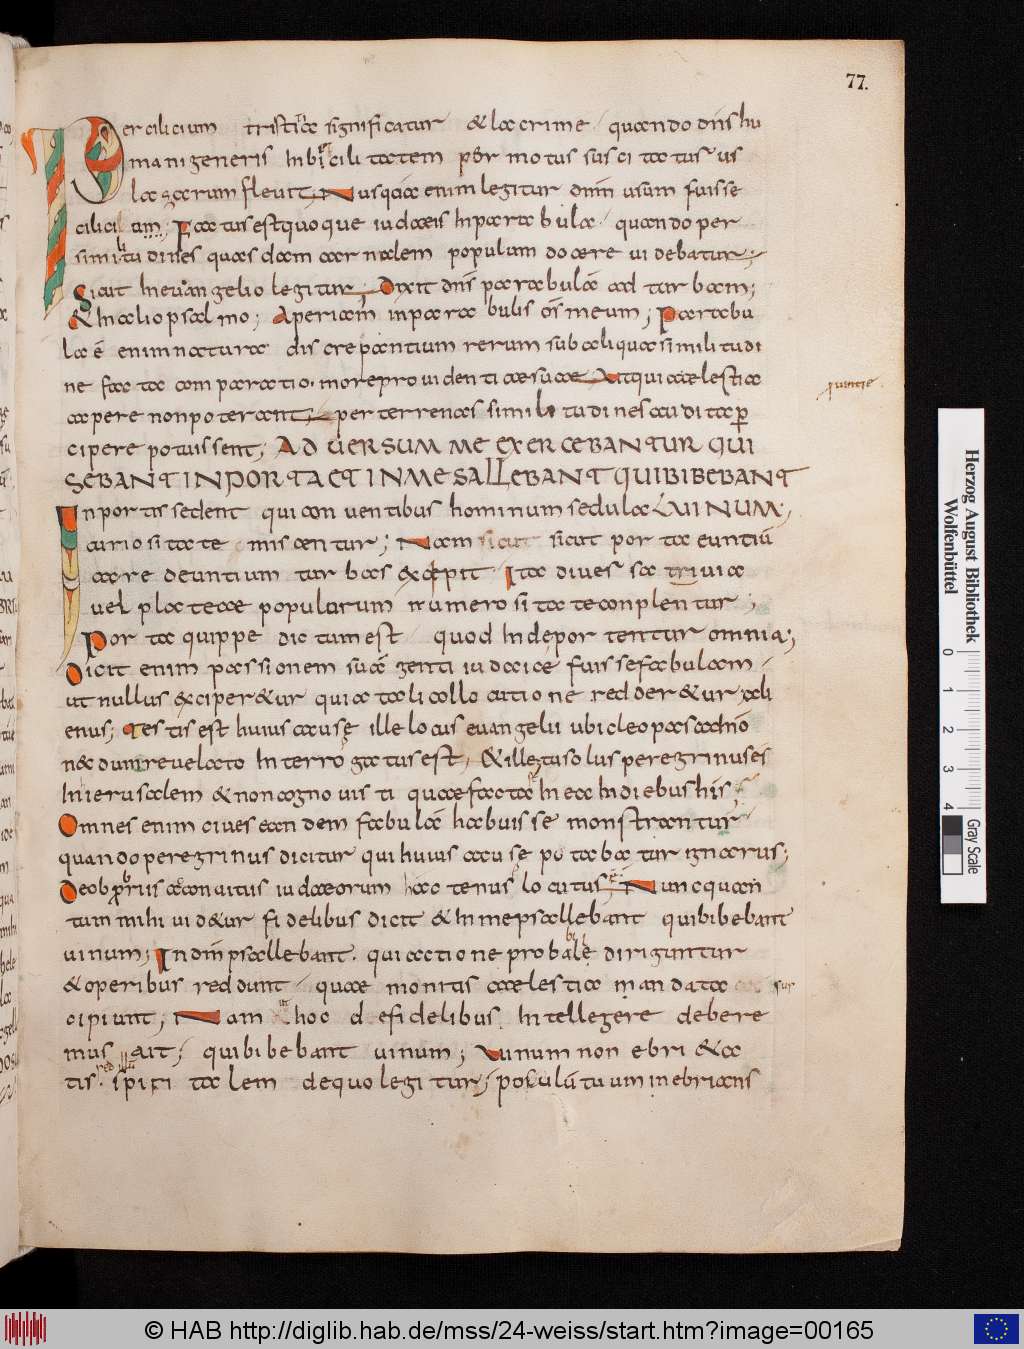 77.
Per cilicium tristitia significatur & lacrime quando dn̄s hu
mani generis Inbicilitatem per motus suscitatus us
lazarum fleuit; Nusquā enim legitur dnm̄ usum fuisse
ciliciam; Factus est quoque iudaeis Inparabula quando per
similitudines quasdam carnalem populum docere uidebatur;
Sicut Ineuangelio legitur; Dixit dn̄s parabulā ad turbam;
& Inalio psalmo; Aperiam inparabulis os̄ meum; Parabu
la ē enim naturae discrepantium rerum sub aliqua similitudi
ne facta comparatio. more prouidentiae suae Ut qui caelestia
capere non poterant; per terrenas similitudines audita p
cipere potuissent; ADUERSUM ME EXERCEBANTUR QUI
SEBANT INPORTA ET INME SALLEBANT QUIBIBEBANT
Inportis sedent qui conuentibus hominum sedula UINUM;
curiositate miscentur; Nam sicut sicut porta euntiū
ac redeuntium turbas excipit Ita diuersa triuia
uel plateae popularum numerositate conplentur;
Porta quippe dictum est quod Inde portentur omnia;
Dicit enim passionem suā genti iudaice fuisse fabulam
ut nullus exciper&ur quia tali collocutione redder&ur ali
enus; Testis est huius cause ille locus euangelii ubi cleopas adnō
n&dum reuelato Interrogatus est, & ille tu solus peregrinus es
Inierusalem & non cognouisti quae facta Inea Indiebus his;
Omnes enim ciues eandem fabulā habuisse monstrantur
quando peregrinus dicitur qui huius cause putabatur ignarus;
Deobpriis ac conuitus iudaeorum hactenus locutus; Nunc quan
tum mihi uid&ur fidelibus dicit & Inme psallebant qui bibebant
uinum; In dn̄m psallebant. qui actione probabile diriguntur
& operibus reddunt quae monitis caelestia mandata sus
cipiunt; Nam hoc de fidelibus Intellegere debere
mus ait; qui bibebant uinum; Uinum non ebri&a
tis. sed illū spiritalem de quo legitur; poculū tuum inebrians
Herzog August Bibliothek
Wolfenbüttel
0 1 2 3 4
Gray Scale
© HAB http://diglib.hab.de/mss/24-weiss/start.htm?image=00165